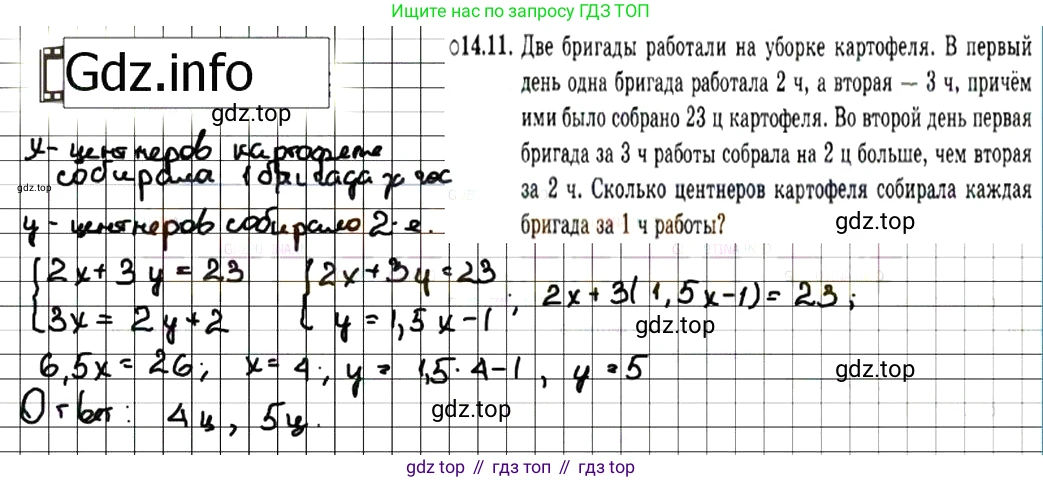 Ищите нас по запросу ГДЗ ТОП
Gdz.info
gdz.top
14.11. Две бригады работали на уборке картофеля. В первый
день одна бригада работала 2 ч, а вторая — 3 ч, причём
ими было собрано 23 ц картофеля. Во второй день первая
бригада за 3 ч работы собрала на 2 ц больше, чем вторая
за 2 ч. Сколько центнеров картофеля собирала каждая
бригада за 1 ч работы?
gdz.top
x - центнеров картофеля
собирала 1 бригада за час
gdz.top
y - центнеров собирало 2-я.
2x + 3y = 23
3x = 2y + 2
2x + 3y = 23
y = 1,5x - 1 ;
2x + 3(1,5x - 1) = 23;
gdz.top
6,5x = 26; x = 4; y = 1,5 · 4 - 1, y = 5
gdz.top
Ответ: 4ц, 5ц.
gdz.top
gdz top // гдз топ // gdz top